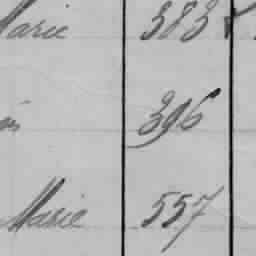 Marie 383
396
Marie 557